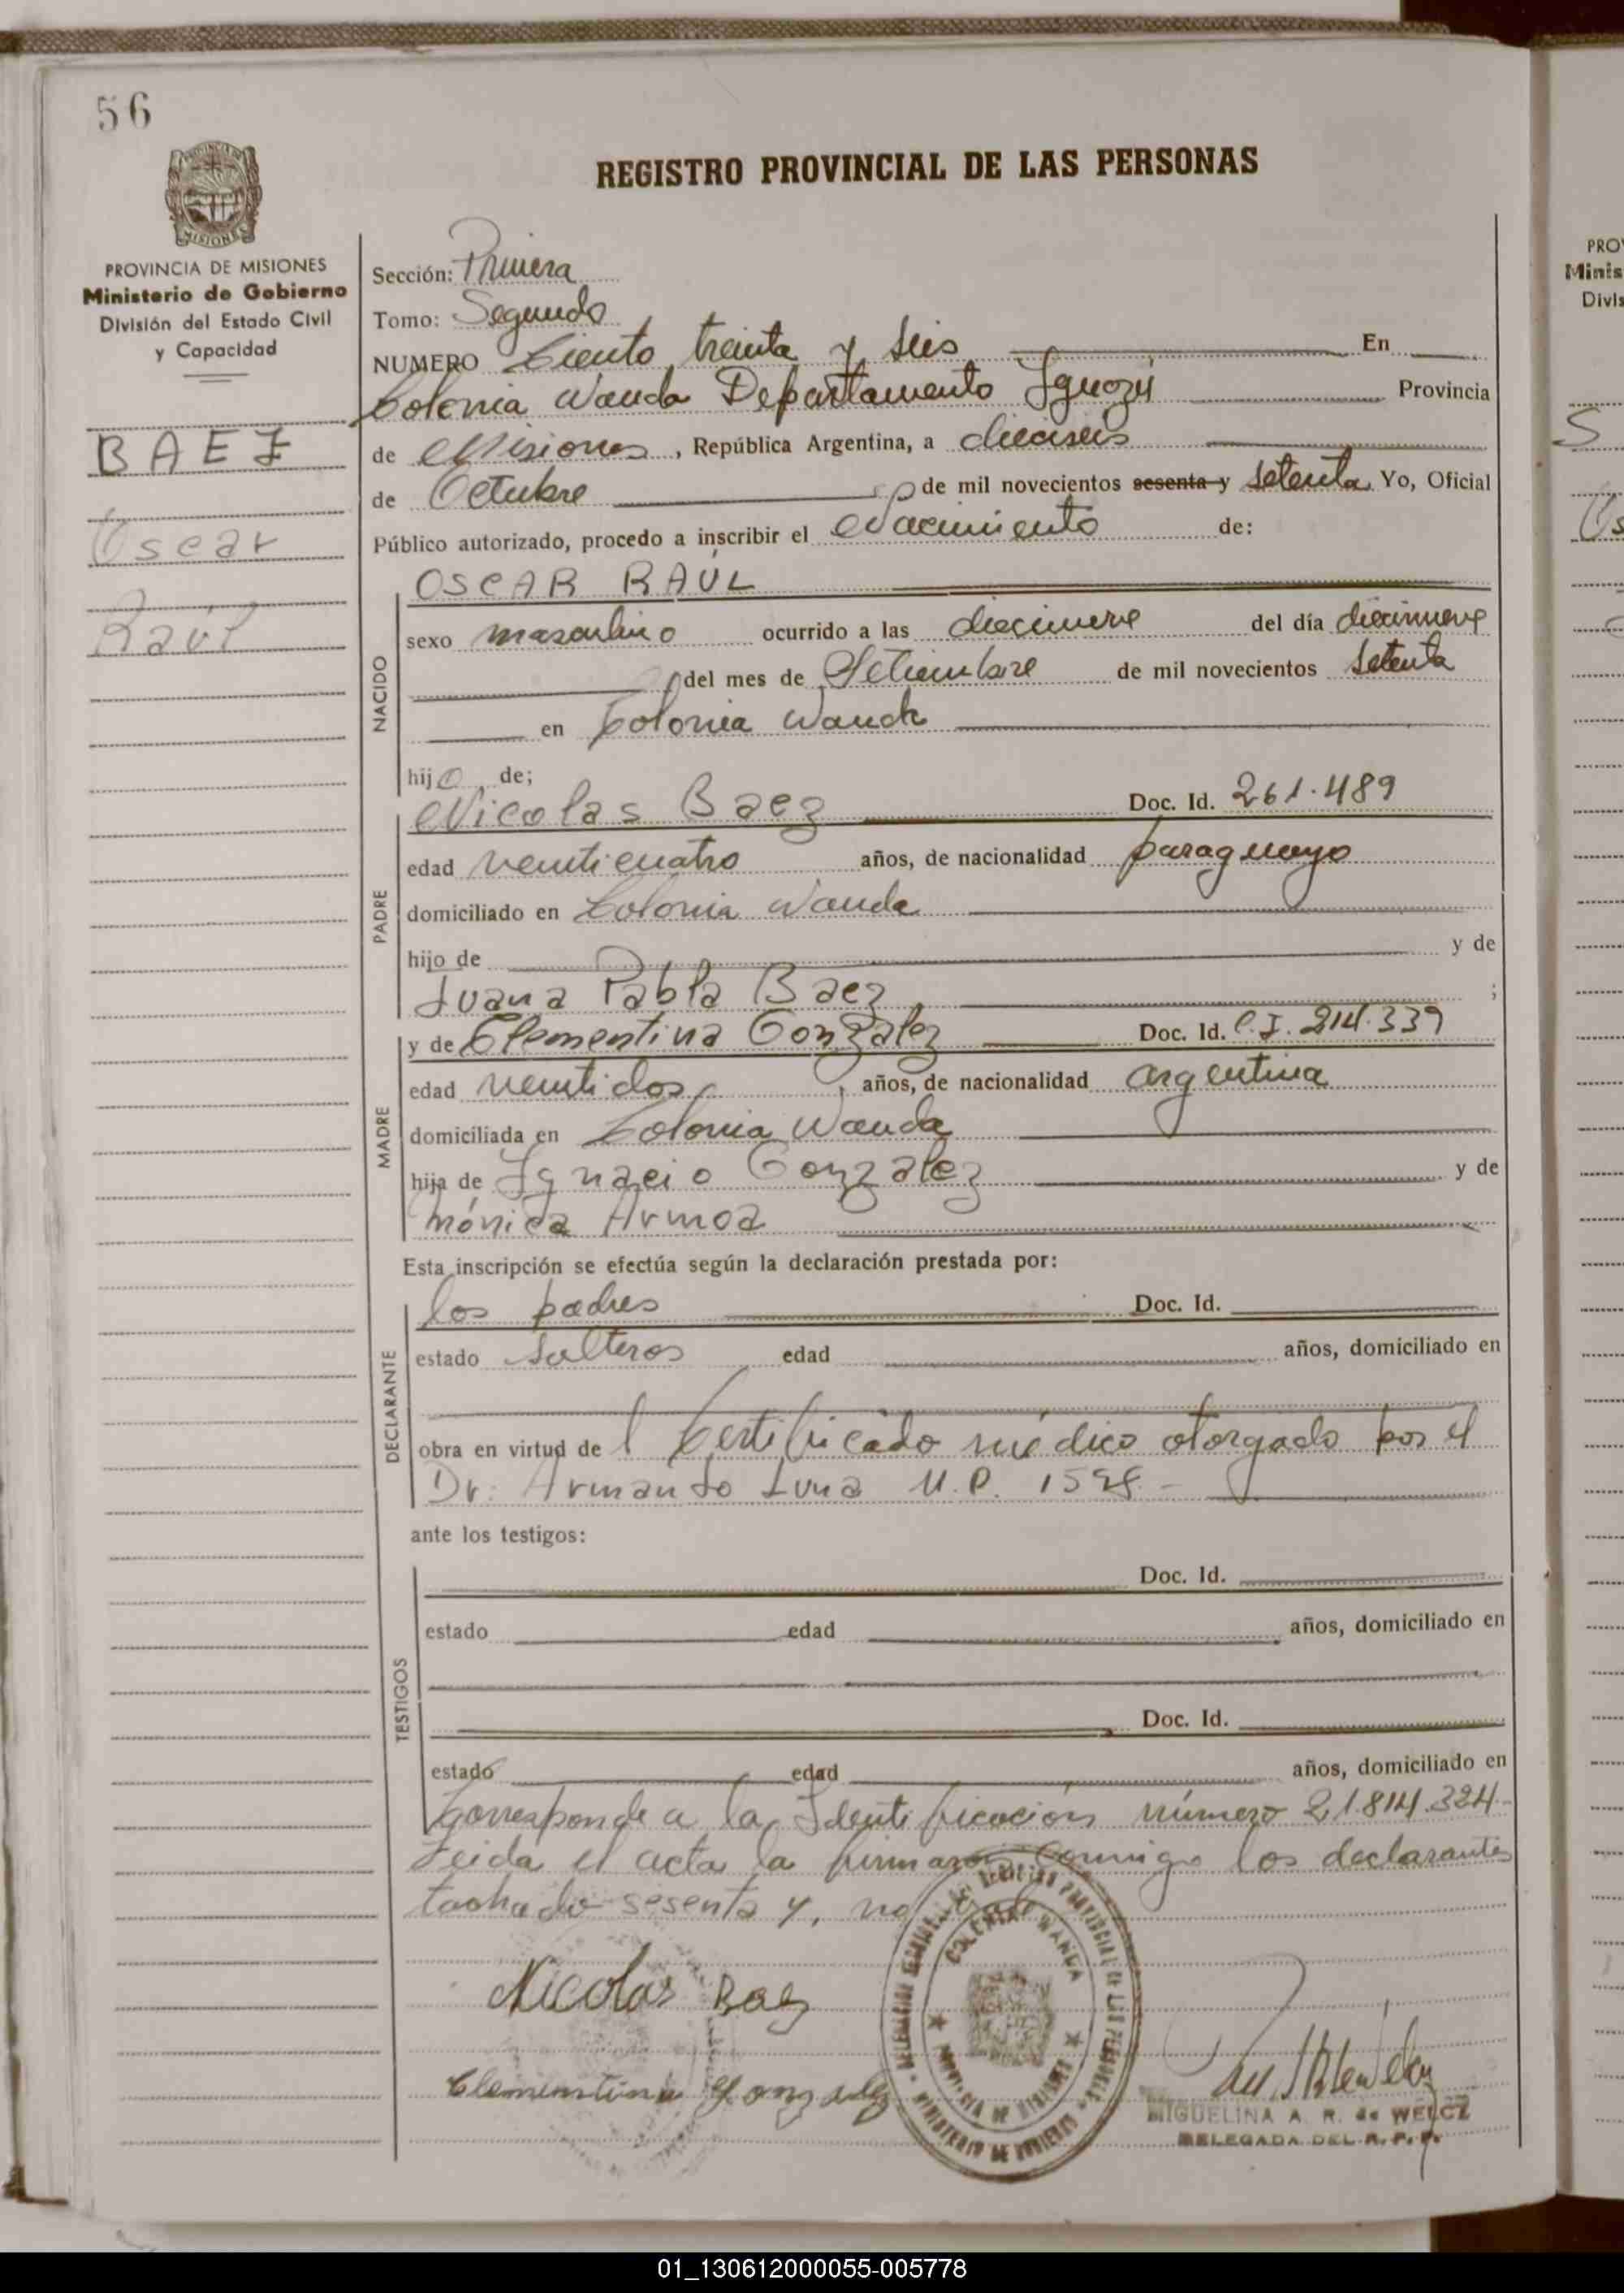 56
REGISTRO PROVINCIAL DE LAS PERSONAS
MISIONES
PROVINCIA DE MISIONES
Ministerio de Gobierno
División del Estado Civil
y Capacidad
BAEZ
Oscar
Raúl
Sección: Primera
Tomo: Segundo
NUMERO Ciento treinta y seis En
Colonia Wanda Departamento Iguazú Provincia
de Misiones, República Argentina, a dieciseis
de Octubre de mil novecientos sesenta y setenta Yo, Oficial
Público autorizado, procedo a inscribir el Nacimiento de:
OSCAR RAÚL
NACIDO
sexo masculino ocurrido a las diecinueve del día diecinueve
del mes de Setiembre de mil novecientos setenta
en Colonia Wanda
hijo de;
PADRE
Nicolas Baez Doc. Id. 261.489
edad veinticuatro años, de nacionalidad paraguayo
domiciliado en Colonia Wanda
hijo de y de
Juana Pabla Baez ;
MADRE
y de Clementina Gonzalez Doc. Id. C.I. 214.339
edad veintidos años, de nacionalidad argentina
domiciliada en Colonia Wanda
hija de Ignacio Gonzalez y de
Mónica Armoa
Esta inscripción se efectúa según la declaración prestada por:
DECLARANTE
los padres Doc. Id.
estado solteros edad años, domiciliado en
obra en virtud de l Certificado médico otorgado por el
Dr. Armando Luna M.P. 1598.-
ante los testigos:
TESTIGOS
Doc. Id.
estado edad años, domiciliado en
Doc. Id.
estado edad años, domiciliado en
Corresponde a la Identificación número 21.814.324-
Leida el acta la firmaron conmigo los declarantes
tachado sesenta y, no
COLONIA WANDA
PROVINCIA DE MISIONES
MINISTERIO DE GOBIERNO
Nicolas Baez
Clementina Gonzalez
MIGUELINA A. R. de WELCZ
DELEGADA DEL R. P. P.
PRO
Minis
Divis
S
Os
01_130612000055-005778